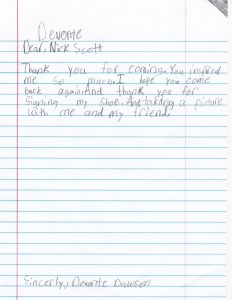 Devonte
Dear, Nick Scott
Thank you for coming. You inspired
me so much. I hope you come
back again. And thank you for
Signing my shoe. And taking a picture
with me and my friend.
Sincerly, Devonte Dawson